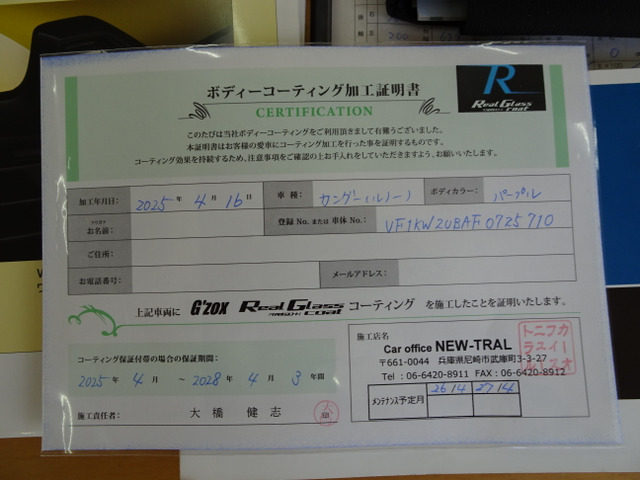 ボディーコーティング加工証明書
CERTIFICATION
R
Real Glass
coat
このたびは当社ボディーコーティングをご利用頂きまして有難うございました。
本証明書はお客様の愛車にコーティング加工を行った事を証明するものです。
コーティング効果を持続するため、注意事項をご確認の上お手入れをしていただきますよう、お願いいたします。
加工年月日： 2025年 4月 16日 車種： カングー(ルノー) ボディカラー： パープル
お名前： 登録No.または車体No.： VF1KW2UBAF0725710
ご住所：
お電話番号： メールアドレス：
上記車両に G'ZOX Real Glass coat コーティング を施工したことを証明いたします。
コーティング保証付帯の場合の保証期間：
2025年 4月 ～ 2028年 4月 3年間
施工責任者： 大橋 健志
施工店名
Car office NEW-TRAL
〒661-0044 兵庫県尼崎市武庫町3-3-27
Tel：06-6420-8911 FAX：06-6420-8912
メンテナンス予定月 26/4 27/4